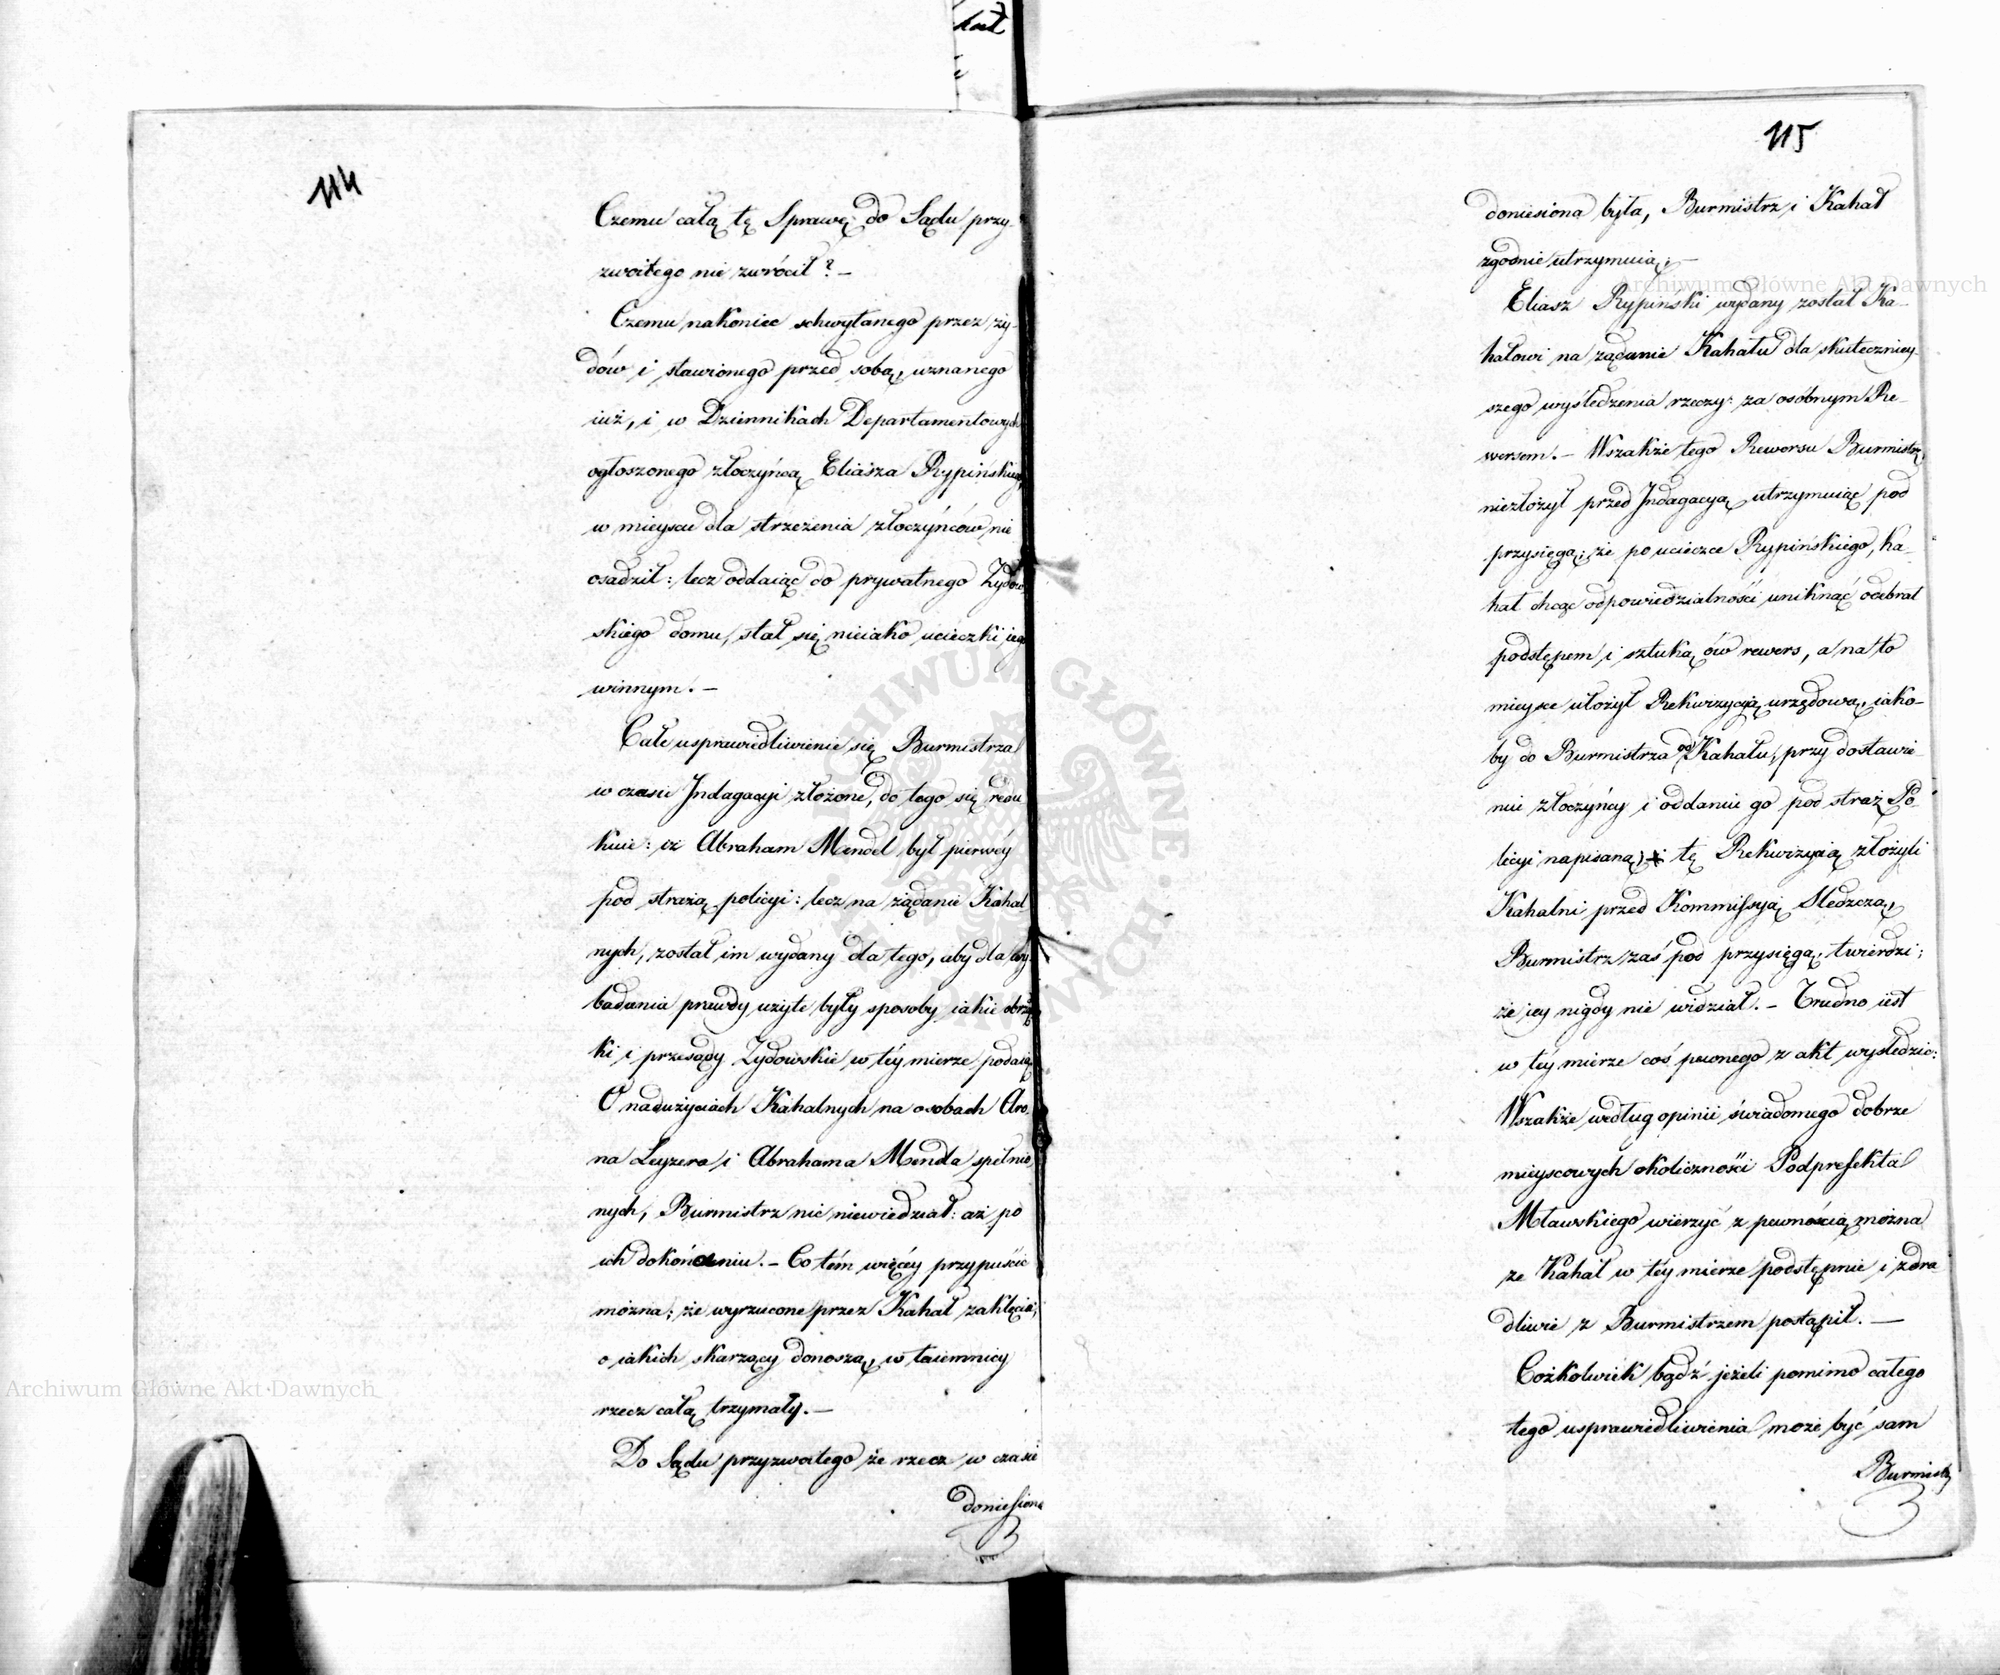 114
Czemu całą tę Sprawę do Sądu przy-
zwoitego nie zwrócił? —
Czemu nakoniec schwytanego przez ży-
dów i stawionego przed sobą, uznanego
iuż, i w Dziennikach Departamentowych
ogłoszonego złoczyńcą Eliasza Rypińskiego,
w mieyscu dla strzeżenia złoczyńców nie
osadził: lecz oddaiąc do prywatnego Żydow
skiego domu, stał się nieiako ucieczki iego
winnym. —
Całe usprawiedliwienie się Burmistrza
w czasie Indagacyi złożone, do tego się redu
kuie: iż Abraham Mendel był pierwéy
pod strażą policyi: lecz na żądanie Kahal-
nych, został im wydany dla tego, aby dla wy-
badania prawdy użyte były sposoby iakie obrząd
ki i przesądy Żydowskie w téy mierze podaią
O nadużyciach Kahalnych na osobach Aro-
na Leyzera i Abrahama Mendla spełnio
nych, Burmistrz nic niewiedział: aż po
ich dokończeniu. — Co tém więcéy przypuścić
można; że wyrzucone przez Kahał zaklęcia,
o iakich skarżący donoszą, w taiemnicy
rzecz całą trzymały. —
Do Sądu przyzwoitego że rzecz w czasie
doniesiona
115
doniesiona była, Burmistrz i Kahał
zgodnie utrzymuią; —
Eliasz Rypiński wydany został Ka-
hałowi na żądanie Kahału dla skuteczniey-
szego wyśledzenia rzeczy: za osóbnym Re-
wersem. — Wszakże tego Rewersu Burmistrz
niezłożył przed Indagacyą utrzymuiąc pod
przysięgą; że po ucieczce Rypińskiego, Ka-
hał chcąc odpowiedzialności uniknąć odebrał
podstępem i sztuką ów rewers, a na to
mieysce ułożył Rekwizycyą urzędową, iako-
by do Burmistrza od Kahału, przy dostawie-
niu złoczyńcy i oddaniu go pod straż Po-
licyi napisaną; i tę Rekwizycią złożyli
Kahalni przed Kommissyą Śledczą,
Burmistrz zaś pod przysięgą, twierdzi;
że iey nigdy nie widział. — Trudno iest
w téy mierze coś pewnego z akt wyśledzić:
Wszakże według opinii świadomego dobrze
mieyscowych okoliczności Podprefekta
Mławskiego wierzyć z pewnością można
że Kahał w téy mierze podstępnie i zdra
dliwie z Burmistrzem postąpił. —
Cożkolwiek bądź jeżeli pomimo całego
tego usprawiedliwienia może być sam
Burmistrz
Archiwum Główne Akt Dawnych
Archiwum Główne Akt Dawnych
ARCHIWUM GŁÓWNE AKT DAWNYCH